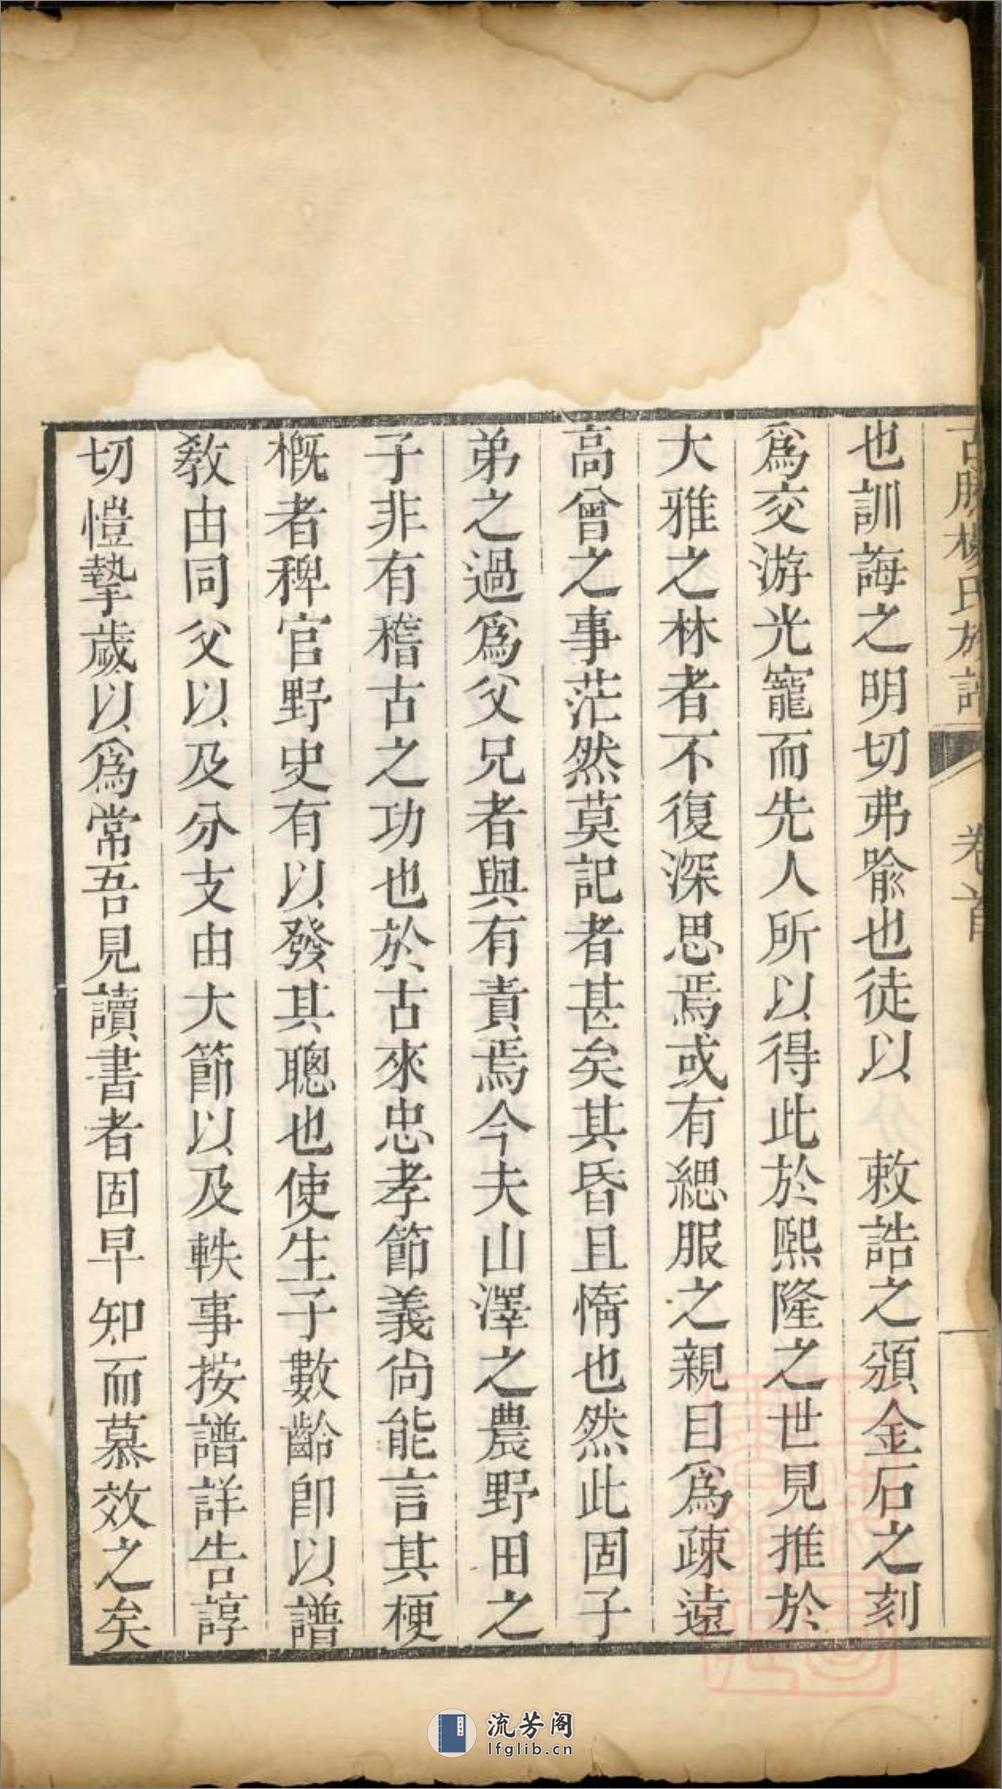 古滕楊氏族譜 卷首
也訓誨之明切弗喻也徒以 敕誥之頒金石之刻
爲交游光寵而先人所以得此於熙隆之世見推於
大雅之林者不復深思焉或有緦服之親目爲疎遠
高曾之事茫然莫記者甚矣其昏且惰也然此固子
弟之過爲父兄者與有責焉今夫山澤之農野田之
子非有稽古之功也於古來忠孝節義尙能言其梗
槪者稗官野史有以發其聰也使生子數齡卽以譜
敎由同父以及分支由大節以及軼事按譜詳告諄
切愷摯歲以爲常吾見讀書者固早知而慕效之矣
流芳阁
lfglib.cn